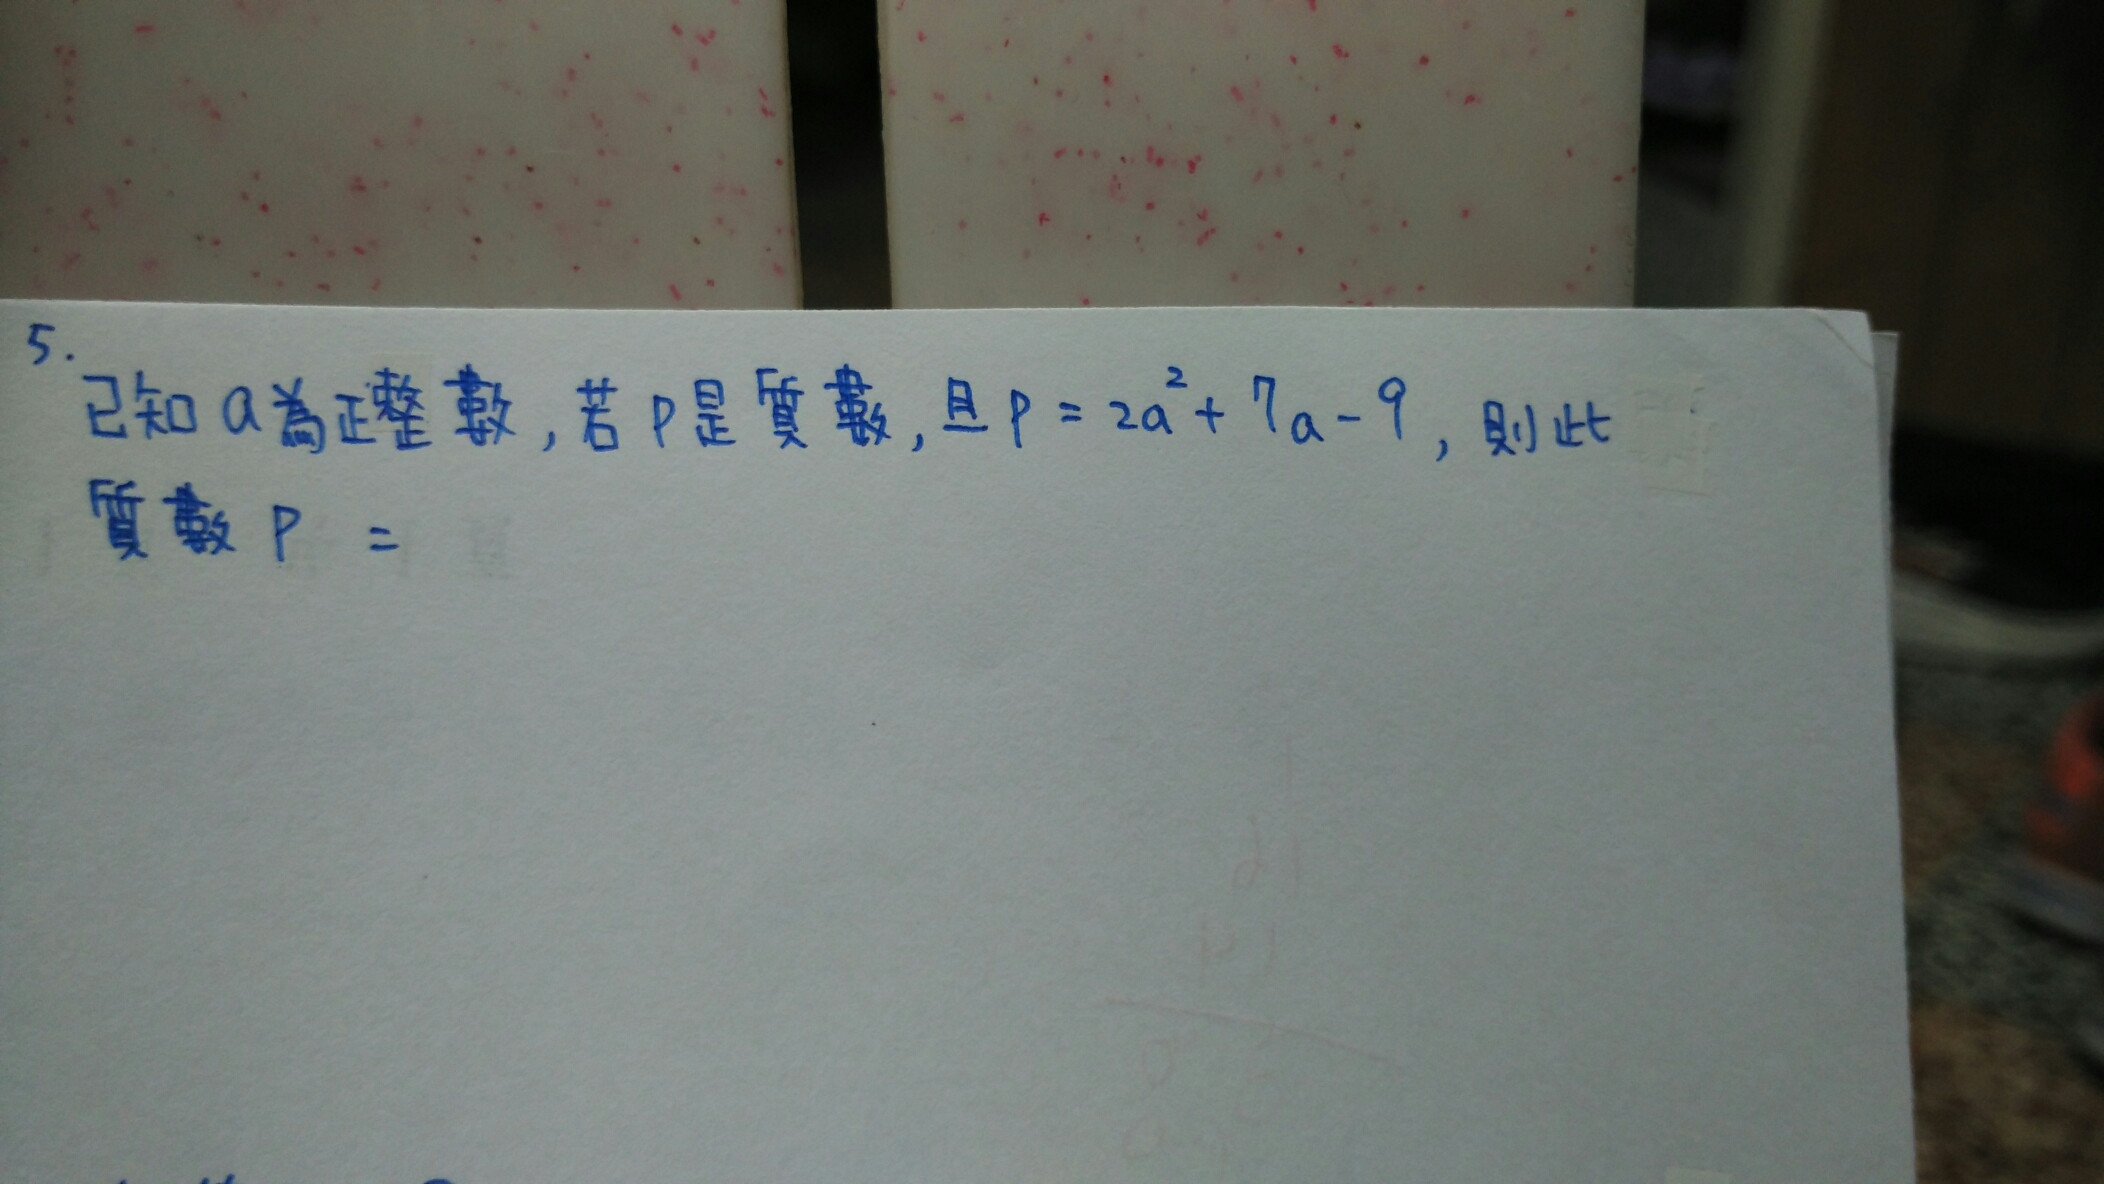 5.
已知a為正整數,若P是質數,且P=2a²+7a-9,則此
質數P =